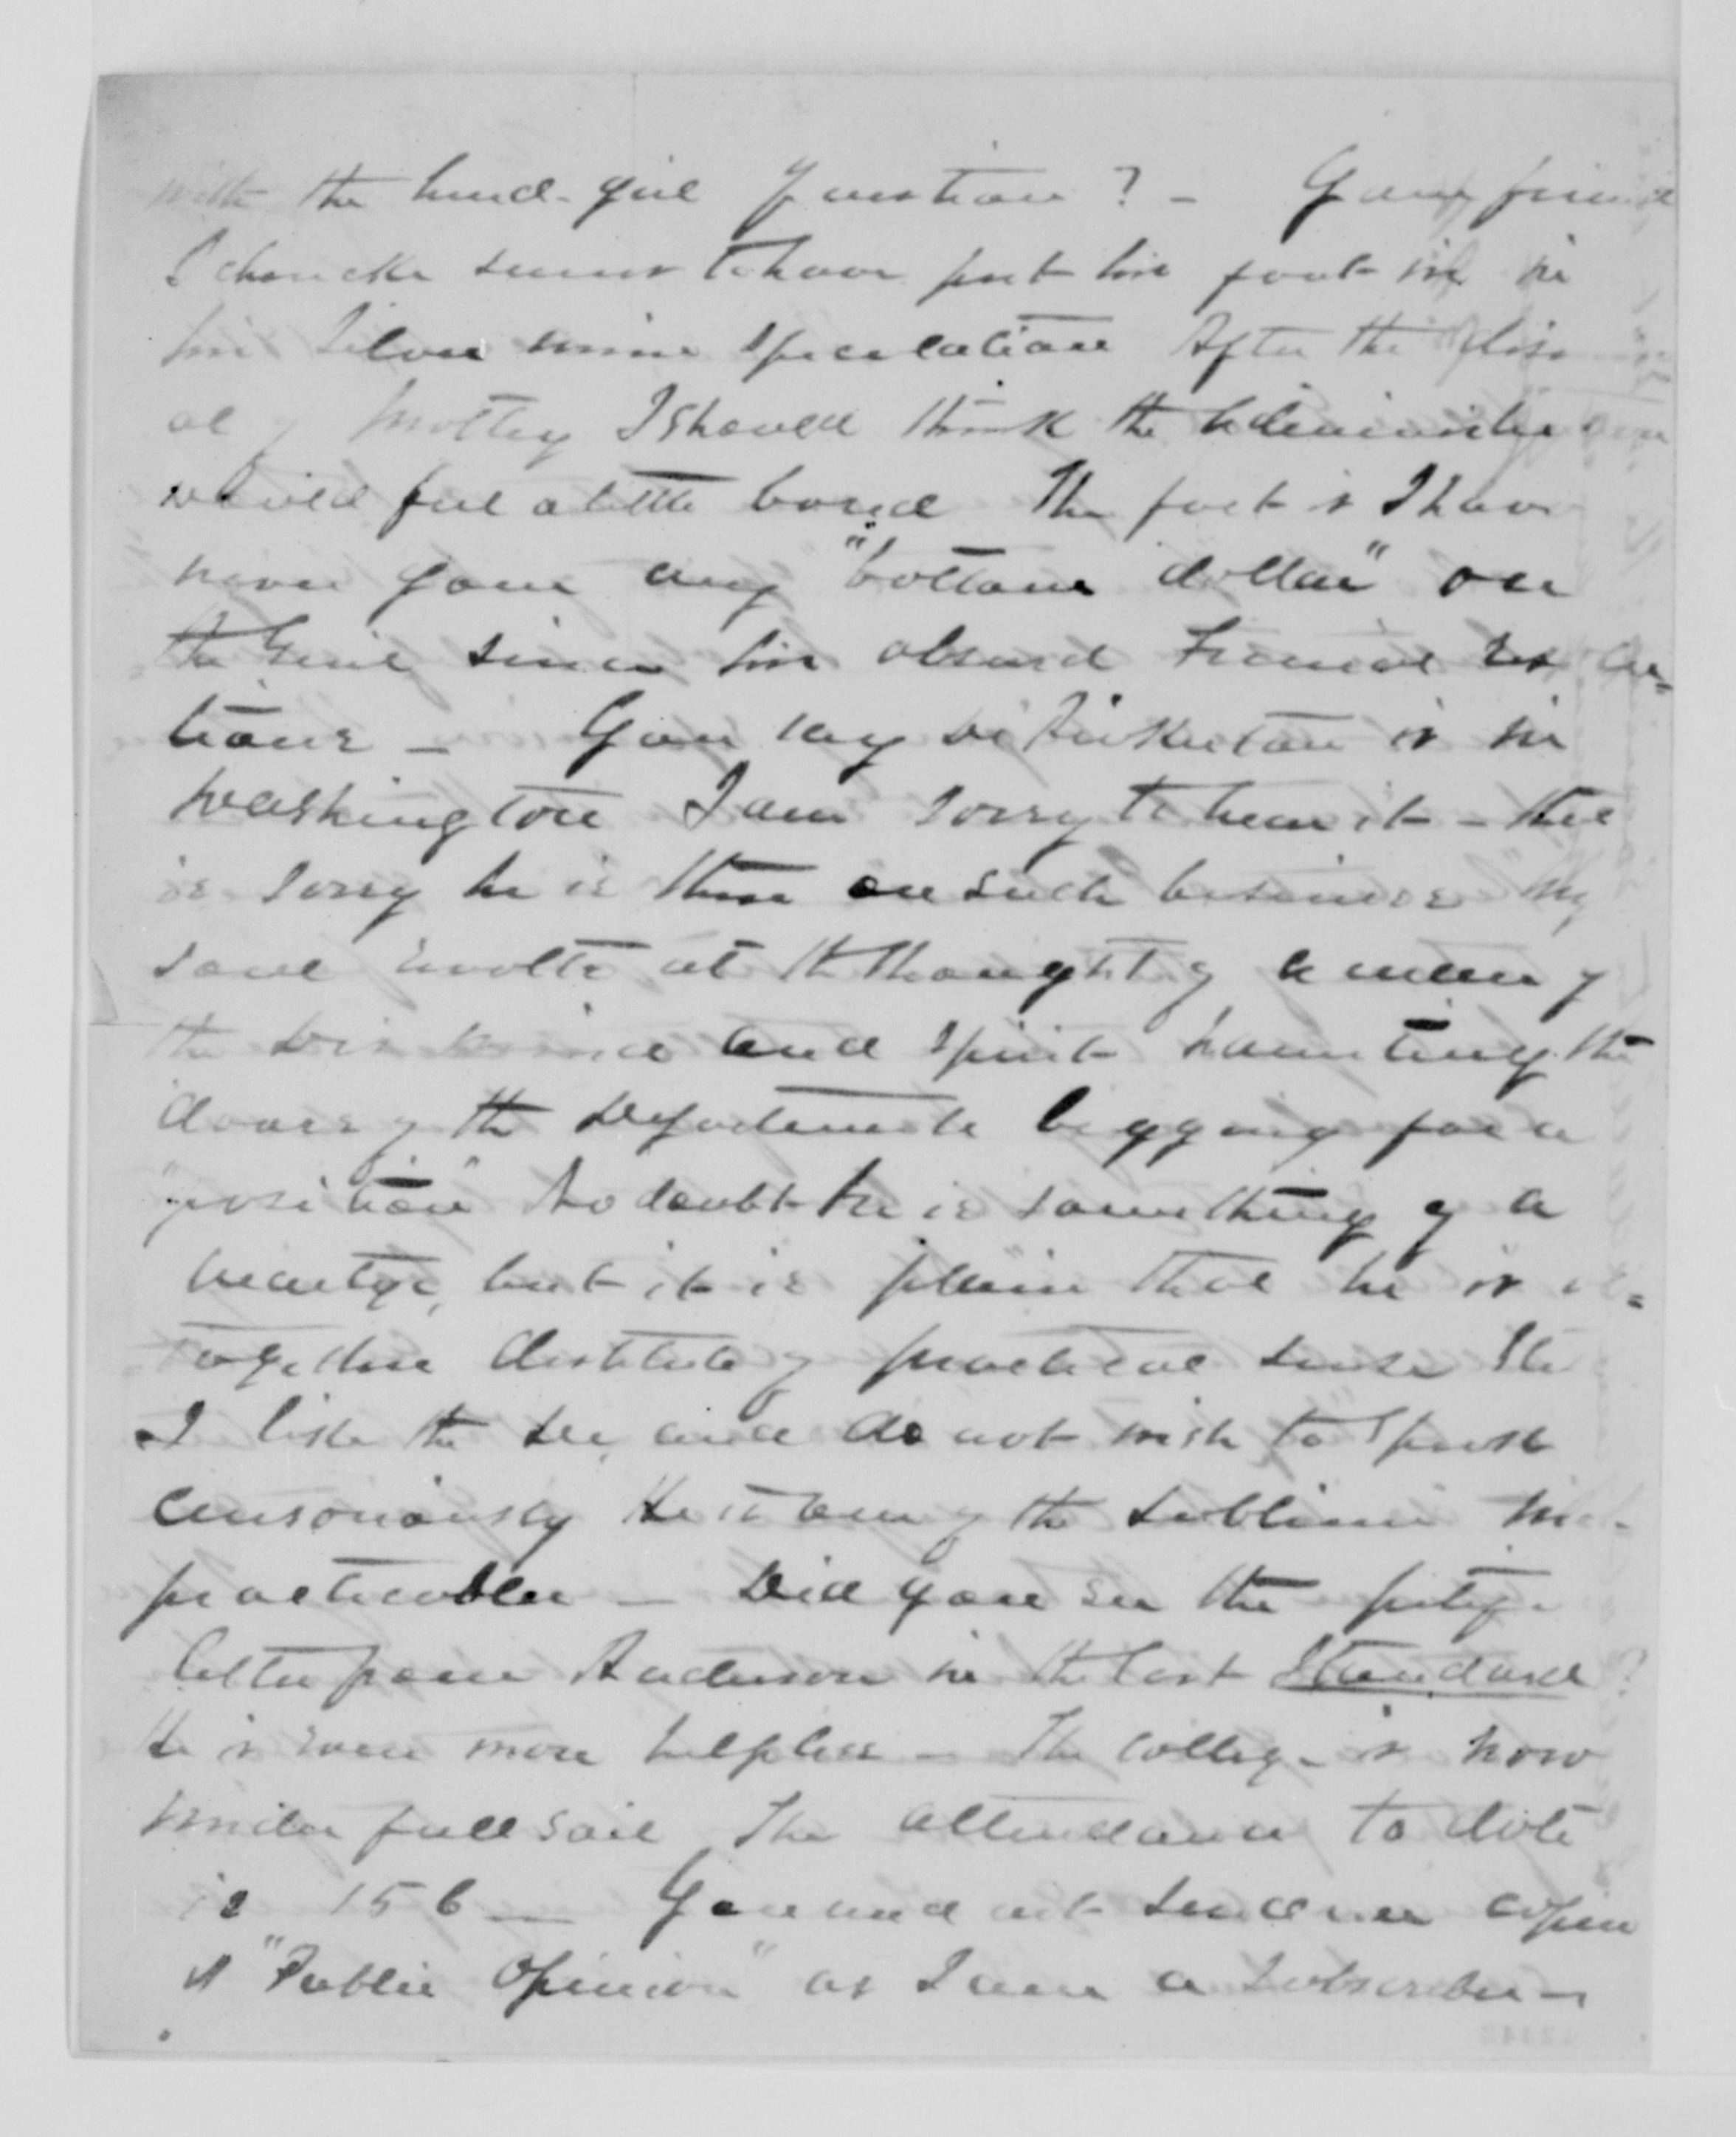 with the hired-girl question? - Your friend
Schencke seems to have put his foot in in
his silver mine speculation After the
of Motley I should think the Administration
would feel a little bored The fact is I have
never gone any "bottom dollar" on
the Genl since his absurd
tions - You say is in
Washington I am sorry to hear it - that
is sorry he is there on such business My
soul revolts at the thought of a man of
the and spirit haunting the
doors of the Departments begging for a
"position" No doubt he is something of a
martyr, but it is plain that he is al=
together destitute of practical sense Still
I like the and do not wish to speak
censoriously He is one of the sublime im-
practicables - Did you see the
letter from Anderson in the last Standard?
He is even more helpless - The College is now
under full sail The attendance to date
is 156 - You need not send me copies
of "Public Opinion" as I am a subscriber -